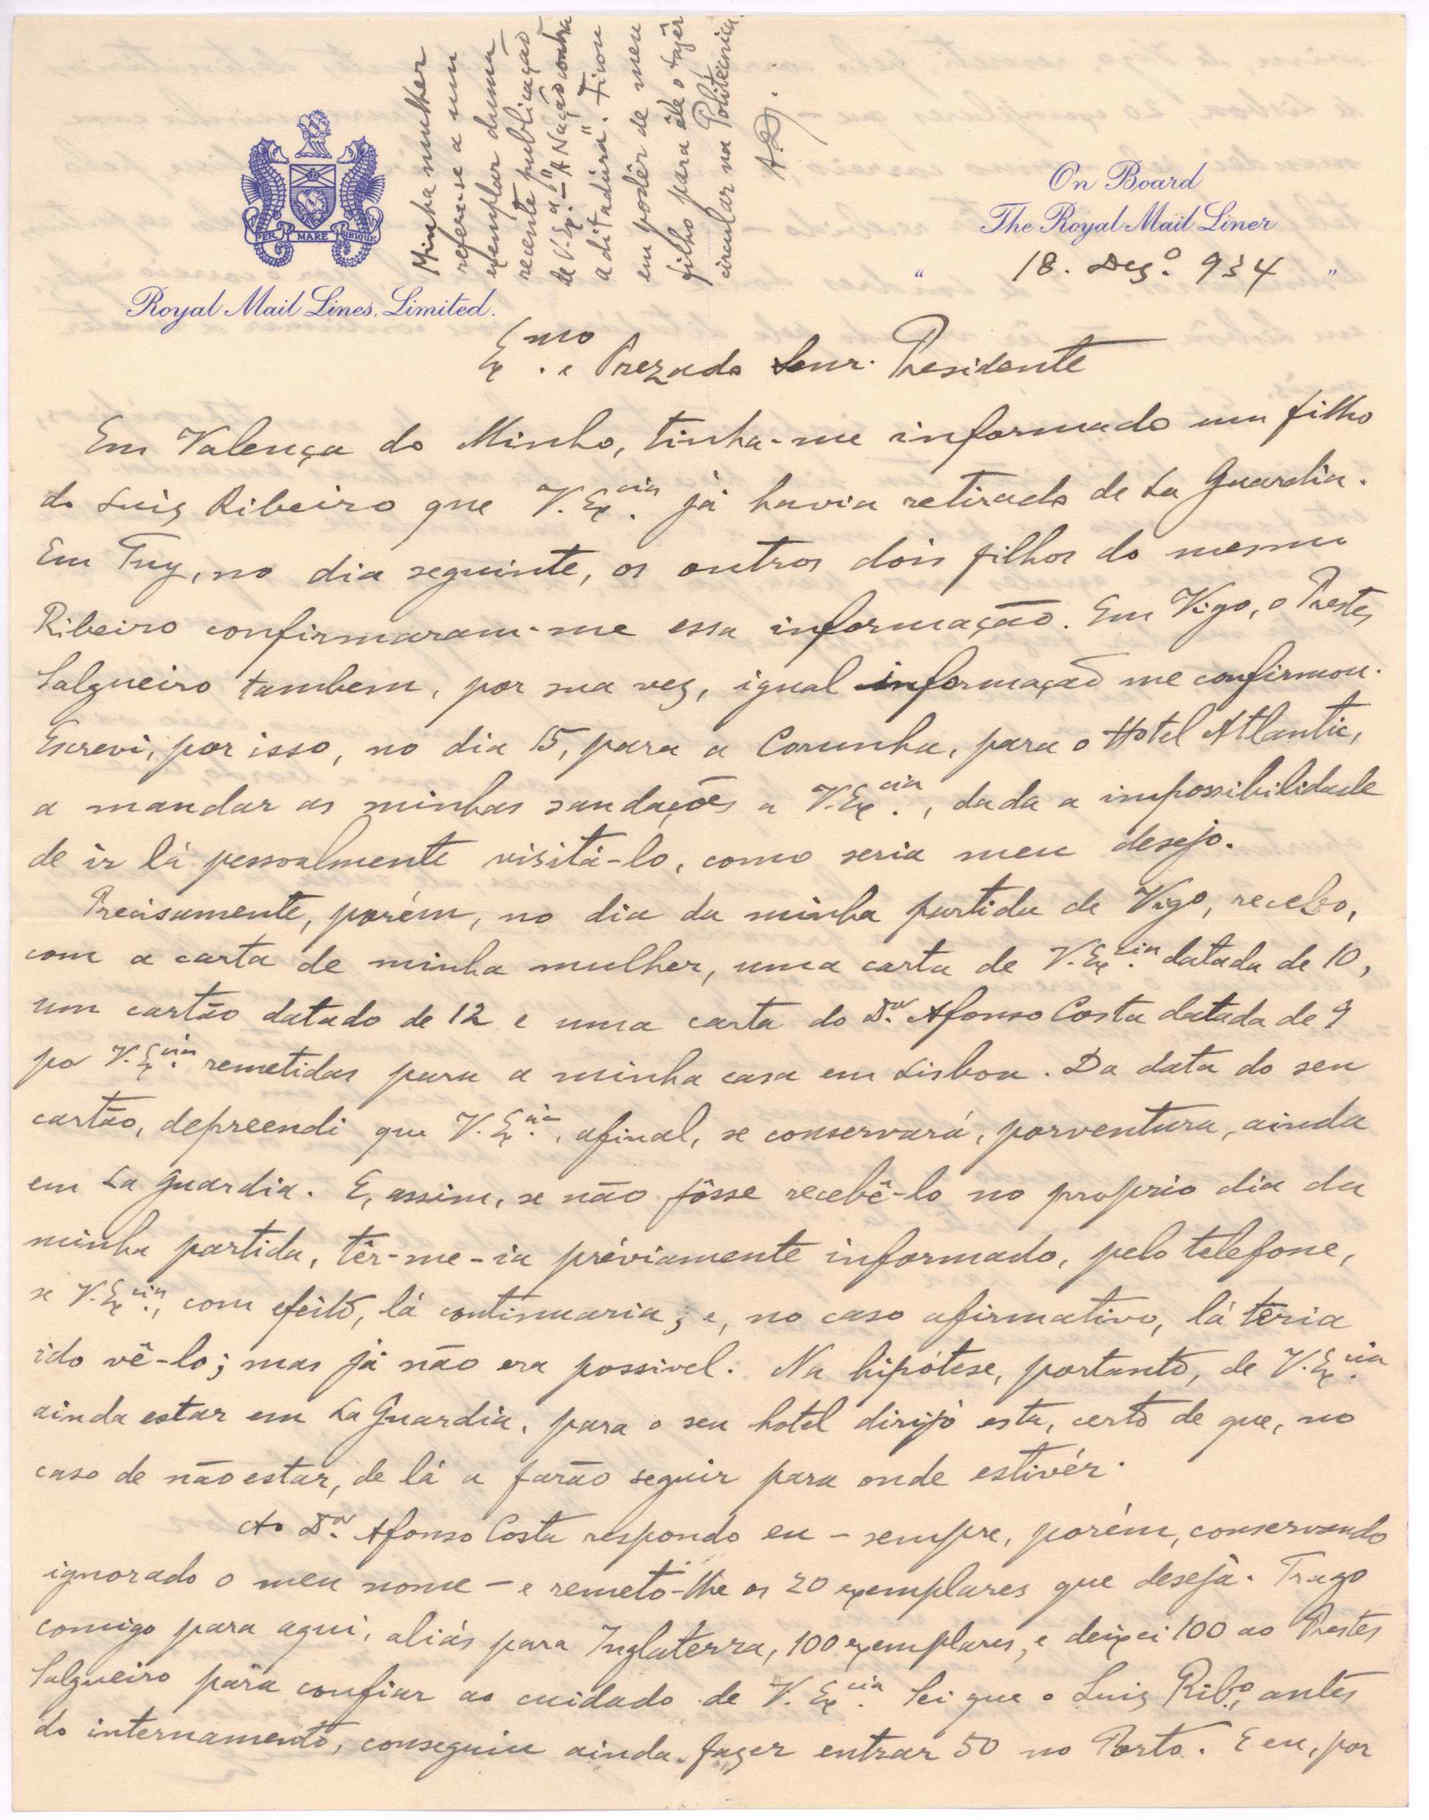 Minha mulher
refere-se a um
exemplar duma
recente publicação
de V. Ex.a - "A Nação contra
a ditadura". Ficou
em podêr de meu
filho para êle o fazêr
circular na Politécnica.
A.D.
PER MARE UBIQUE
Royal Mail Lines, Limited.
On Board
The Royal Mail Liner
" 18. Dez.o 934 "
Ex.mo e Prezado Senr. Presidente
Em Valença do Minho, tinha-me informado um filho
do Luiz Ribeiro que V. Ex.cia já havia retirado de La Guardia.
Em Tuy, no dia seguinte, os outros dois filhos do mesmo
Ribeiro confirmaram-me essa informação. Em Vigo, o Prestes
Salgueiro tambem, por sua vez, igual informação me confirmou.
Escrevi, por isso, no dia 15, para a Corunha, para o Hotel Atlantic,
a mandar as minhas saudações a V. Ex.cia, dada a impossibilidade
de ir lá pessoalmente visitá-lo, como seria meu desejo.
Precisamente, porém, no dia da minha partida de Vigo, recebo,
com a carta de minha mulher, uma carta de V. Ex.cia datada de 10,
um cartão datado de 12 e uma carta do Dr. Afonso Costa datada de 9
por V. Ex.cia remetidas para a minha casa em Lisboa. Da data do seu
cartão, depreendi que V. Ex.cia, afinal, se conservará, porventura, ainda
em La Guardia. E, assim, se não fôsse recebê-lo no proprio dia da
minha partida, têr-me-ia préviamente informado, pelo telefone,
se V. Ex.cia, com efeito, lá continuaria; e, no caso afirmativo, lá teria
ido vê-lo; mas já não era possivel. Na hipótese, portanto, de V. Ex.cia
ainda estar em La Guardia, para o seu hotel dirijo esta, certo de que, no
caso de não estar, de lá a farão seguir para onde estivér.
Ao Dr. Afonso Costa respondo eu - sempre, porém, conservando
ignorado o meu nome - e remeto-lhe os 20 exemplares que deseja. Trago
comigo para aqui, aliás para Inglaterra, 100 exemplares, e deixei 100 ao Prestes
Salgueiro para confiar ao cuidado de V. Ex.cia. Sei que o Luiz Rib.o, antes
do internamento, conseguiu ainda fazer entrar 50 no Porto. E eu, por